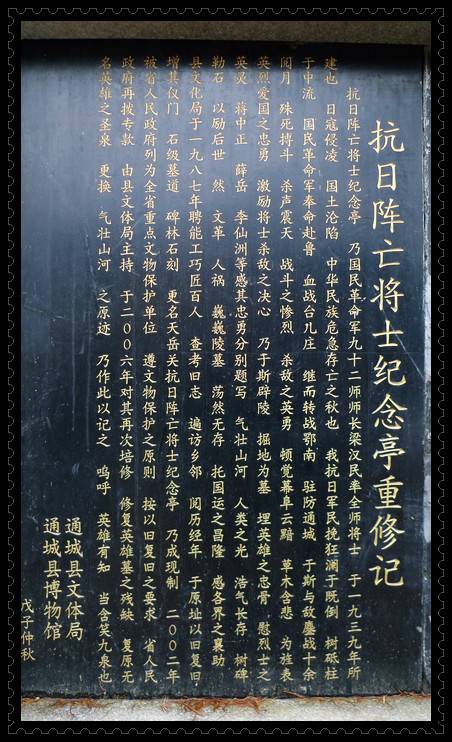 抗日阵亡将士纪念亭重修记
抗日阵亡将士纪念亭 乃国民革命军九十二师师长梁汉民率全师将士 于一九三九年所
建也 日寇侵凌 国土沦陷 中华民族危急存亡之秋也 我抗日军民挽狂澜于既倒 树砥柱
于中流 国民革命军奉命赴鲁 血战台儿庄 继而转战鄂南 驻防通城 于斯与敌鏖战十余
阅月 殊死搏斗 杀声震天 战斗之惨烈 杀敌之英勇 顿觉幕阜云黯 草木含悲 为旌表
英烈爱国之忠勇 激励将士杀敌之决心 乃于斯辟陵 掘地为墓 埋英雄之忠骨 慰烈士之
英灵 蒋中正 薛岳 李仙洲等感其忠勇分别题写 气壮山河 人类之光 浩气长存 树碑
勒石 以励后世 然 文革 人祸 巍巍陵墓 荡然无存 托国运之昌隆 感各界之襄助
县文化局于一九八七年聘能工巧匠百人 查考旧志 遍访乡邻 阅历经年 于原址以旧复旧
增其仪门 石级墓道 碑林石刻 更名天岳关抗日阵亡将士纪念亭 乃成现制 二００二年
被省人民政府列为全省重点文物保护单位 遵文物保护之原则 按以旧复旧之要求 省人民
政府再拨专款 由县文体局主持 于二００六年对其再次培修 修复英雄墓之残缺 复原无
名英雄之圣泉 更换 气壮山河 之原迹 乃作此以记之 呜呼 英雄有知 当含笑九泉也
通城县文体局
通城县博物馆
戊子仲秋